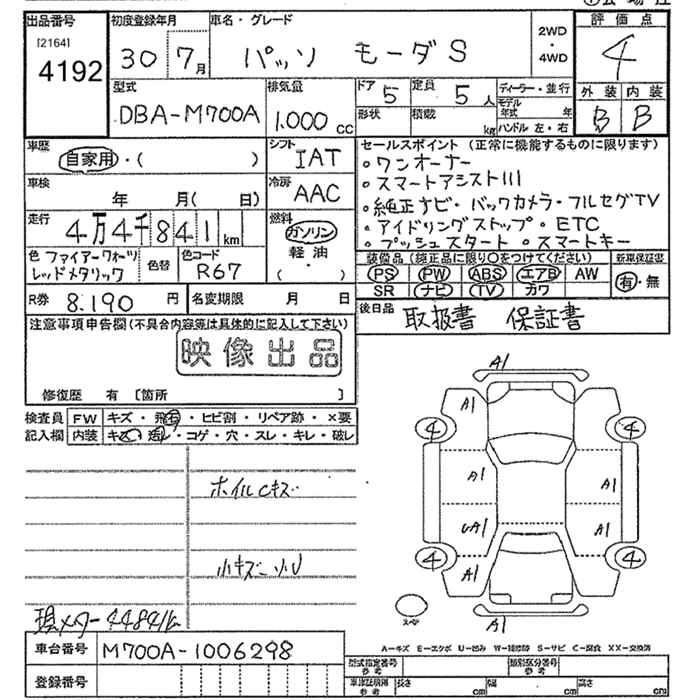 出品番号 初度登録年月 車名・グレード 2WD・4WD 評価点
[2164]
4192 30 7月 パッソ モーダS 4
型式 排気量 ドア 5 定員 5人 ディーラー・並行 外装 内装
DBA-M700A 1.000cc 形状 積載 kg モデル年式 年 B B
ハンドル 左・右
車歴 シフト セールスポイント (正常に機能するものに限ります)
自家用・( ) IAT
・ワンオーナー
・スマートアシストIII
車検 年 月( 日) 冷房 AAC
・純正ナビ・バックカメラ・フルセグTV
走行 4万4千841km 燃料 ガソリン 軽油 ・ ( )
・アイドリングストップ・ETC
・プッシュスタート・スマートキー
色 ファイアークォーツレッドメタリック 色替 色コード R67
装備品 (純正品に限り○をつけてください) 新車保証書
PS PW ABS エアB AW 有・無
SR ナビ TV カワ
R券 8.190円 名変期限 月 日
後日品 取扱書 保証書
注意事項申告欄(不具合内容等は具体的に記入して下さい)
映像出品
修復歴 有 [箇所 ]
検査員 FW キズ・飛石・ヒビ割・リペア跡・×要
記入欄 内装 キズ・汚レ・コゲ・穴・スレ・キレ・破レ
ホイルCキズ
小キズ 小U
現メーター44841km
A1
A1
4 4
A1 A1
UA1 A1
4 4
A1
スペア
A1
A-キズ E-エクボ U-凹み W-補修跡 S-サビ C-腐食 XX-交換済
車台番号 M700A-1006298
型式指定番号 参考 類別区分番号 参考
登録番号
車体寸法 参考 長さ cm 幅 cm 高さ cm